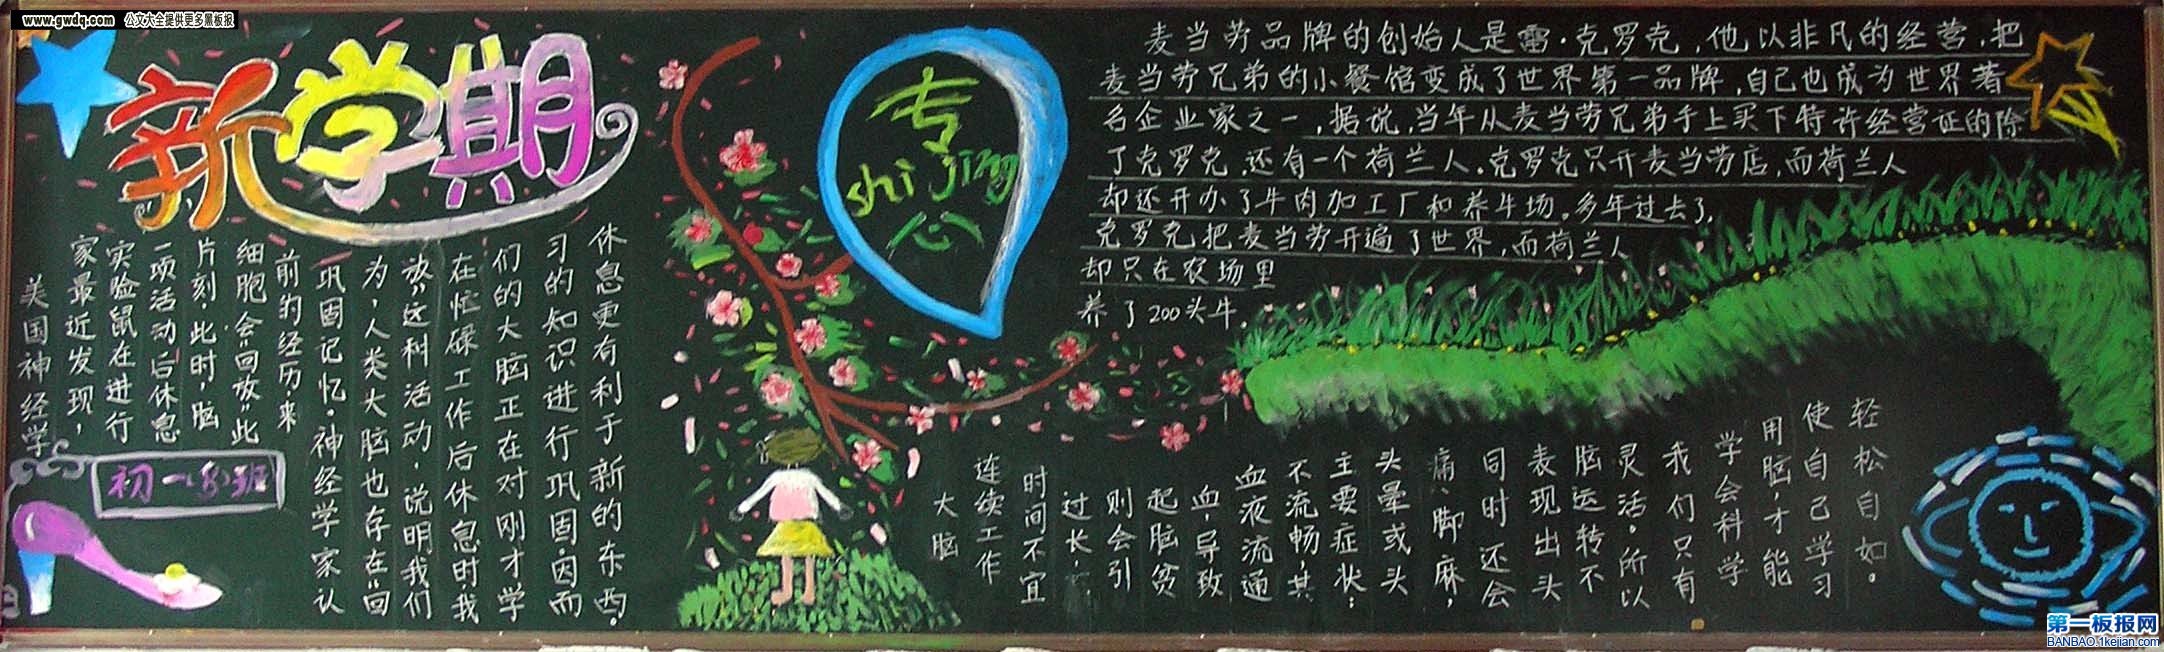 www.gwdq.com 公文大全提供更多黑板报
新学期
美国神经学
家最近发现，
实验鼠在进行
一项活动后休息
片刻，此时，脑
细胞会“回放”此
前的经历，来
巩固记忆。神经学家认
为，人类大脑也存在“回
放”这科活动，说明我们
在忙碌工作后休息时我
们的大脑正在对刚才学
习的知识进行巩固，因而
休息更有利于新的东西。
初一(8)班
专
shi jing
心
麦当劳品牌的创始人是雷·克罗克，他以非凡的经营，把
麦当劳兄弟的小餐馆变成了世界第一品牌，自己也成为世界著
名企业家之一，据说，当年从麦当劳兄弟手上买下特许经营证的除
了克罗克，还有一个荷兰人。克罗克只开麦当劳店，而荷兰人
却还开办了牛肉加工厂和养牛场。多年过去了，
克罗克把麦当劳开遍了世界，而荷兰人
却只在农场里
养了200头牛。
大脑
连续工作
时间不宜
过长，
则会引
起脑贫
血，导致
血液流通
不流畅，其
主要症状：
头晕或头
痛、脚麻，
同时还会
表现出头
脑运转不
灵活。所以
我们只有
学会科学
用脑，才能
使自己学习
轻松自如。
第一板报网
BANBAO.1kejian.com